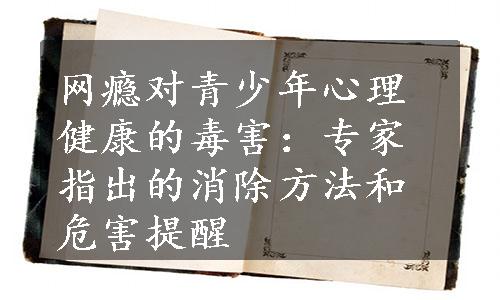 网瘾对青少年心理
健康的毒害：专家
指出的消除方法和
危害提醒